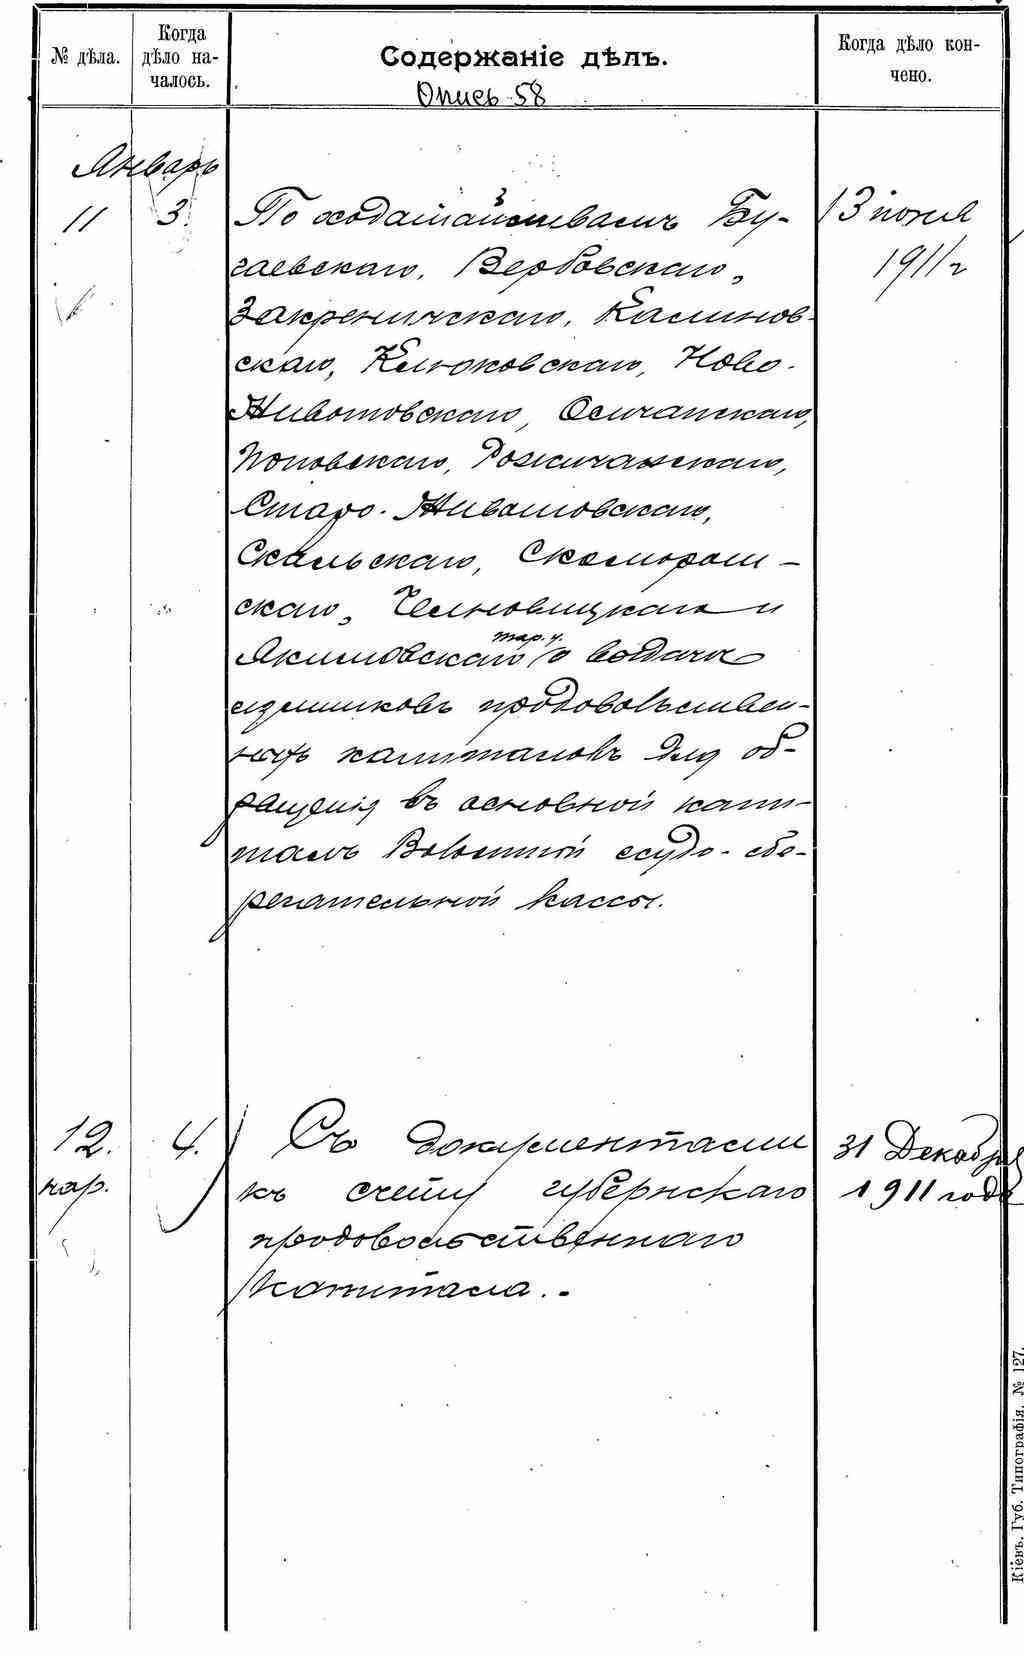 № дѣла.
Когда
дѣло на-
чалось.
Содержаніе дѣлъ.
Когда дѣло кон-
чено.
Опись 58
Январь
11
3.
По ходатайствамъ Бу-
13 іюня
1911 г
гаевскаго, Вербовскаго,
Закреничскаго, Калинов-
скаго, Клюковскаго, Ново-
Животовскаго, Осичанскаго,
Поповскаго, Рожичанскаго,
Старо-Животовскаго,
Скальскаго, Скоморош-
скаго, и
Якимовскаго о выдачѣ
излишковъ продовольствен-
ныхъ капиталовъ для об-
ращенія въ основной капи-
талъ Волостной ссудо-сбе-
регательной кассы.
12.
нар.
4.
Съ документами
къ счету губернскаго
продовольственнаго
капитала.-
31 Декабря
1911 года
Кіевъ. Губ. Типографія. № 127.